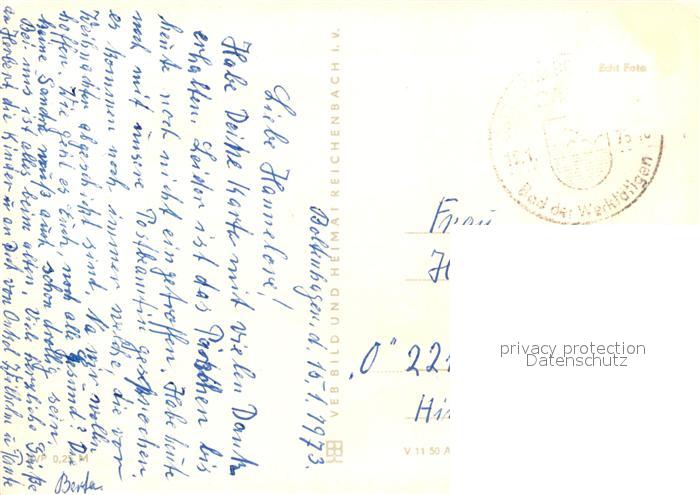 Boltenhagen, d. 15.1.1973.
Liebe Hannelore!
Habe Deine Karte mit vielen Dank
erhalten. Leider ist das Päckchen bis
heute noch nicht eingetroffen. Habe heute
noch mit unsere Postbeamtin gesprochen,
es kommen noch immer welche, die vor
Weihnachten abgeschickt sind. Na wir wollen
hoffen. Wie geht es Euch, noch alle gesund? Die
kleine Sandra muß auch schon drollig sein.
Bei uns ist alles beim alten. Viele herzliche Grüße
an Herbert, die Kinder u. an Dich von Onkel Wilhelm u. Tante
Berta.
VEB BILD UND HEIMAT REICHENBACH I. V.
V 11 50 A
0,25 M
Echt Foto
Bad der Werktätigen
Frau
H
"O" 22
Hi
privacy protection
Datenschutz